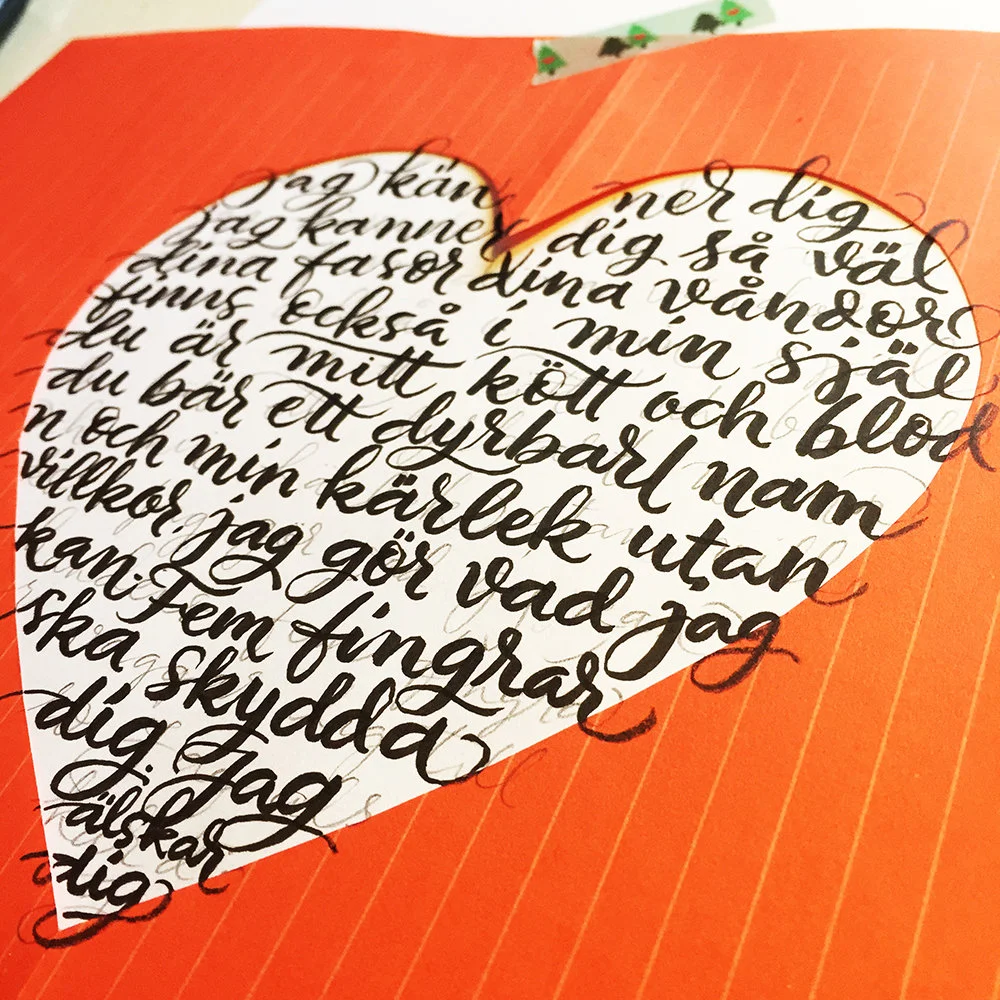 Jag känner dig
jag känner dig så väl
dina fasor dina våndor
finns också i min själ
du är mitt kött och blod
du bär ett dyrbart nam
n och min kärlek utan
villkor. jag gör vad jag
kan. Fem fingrar
ska skydda
dig. Jag
älskar
dig